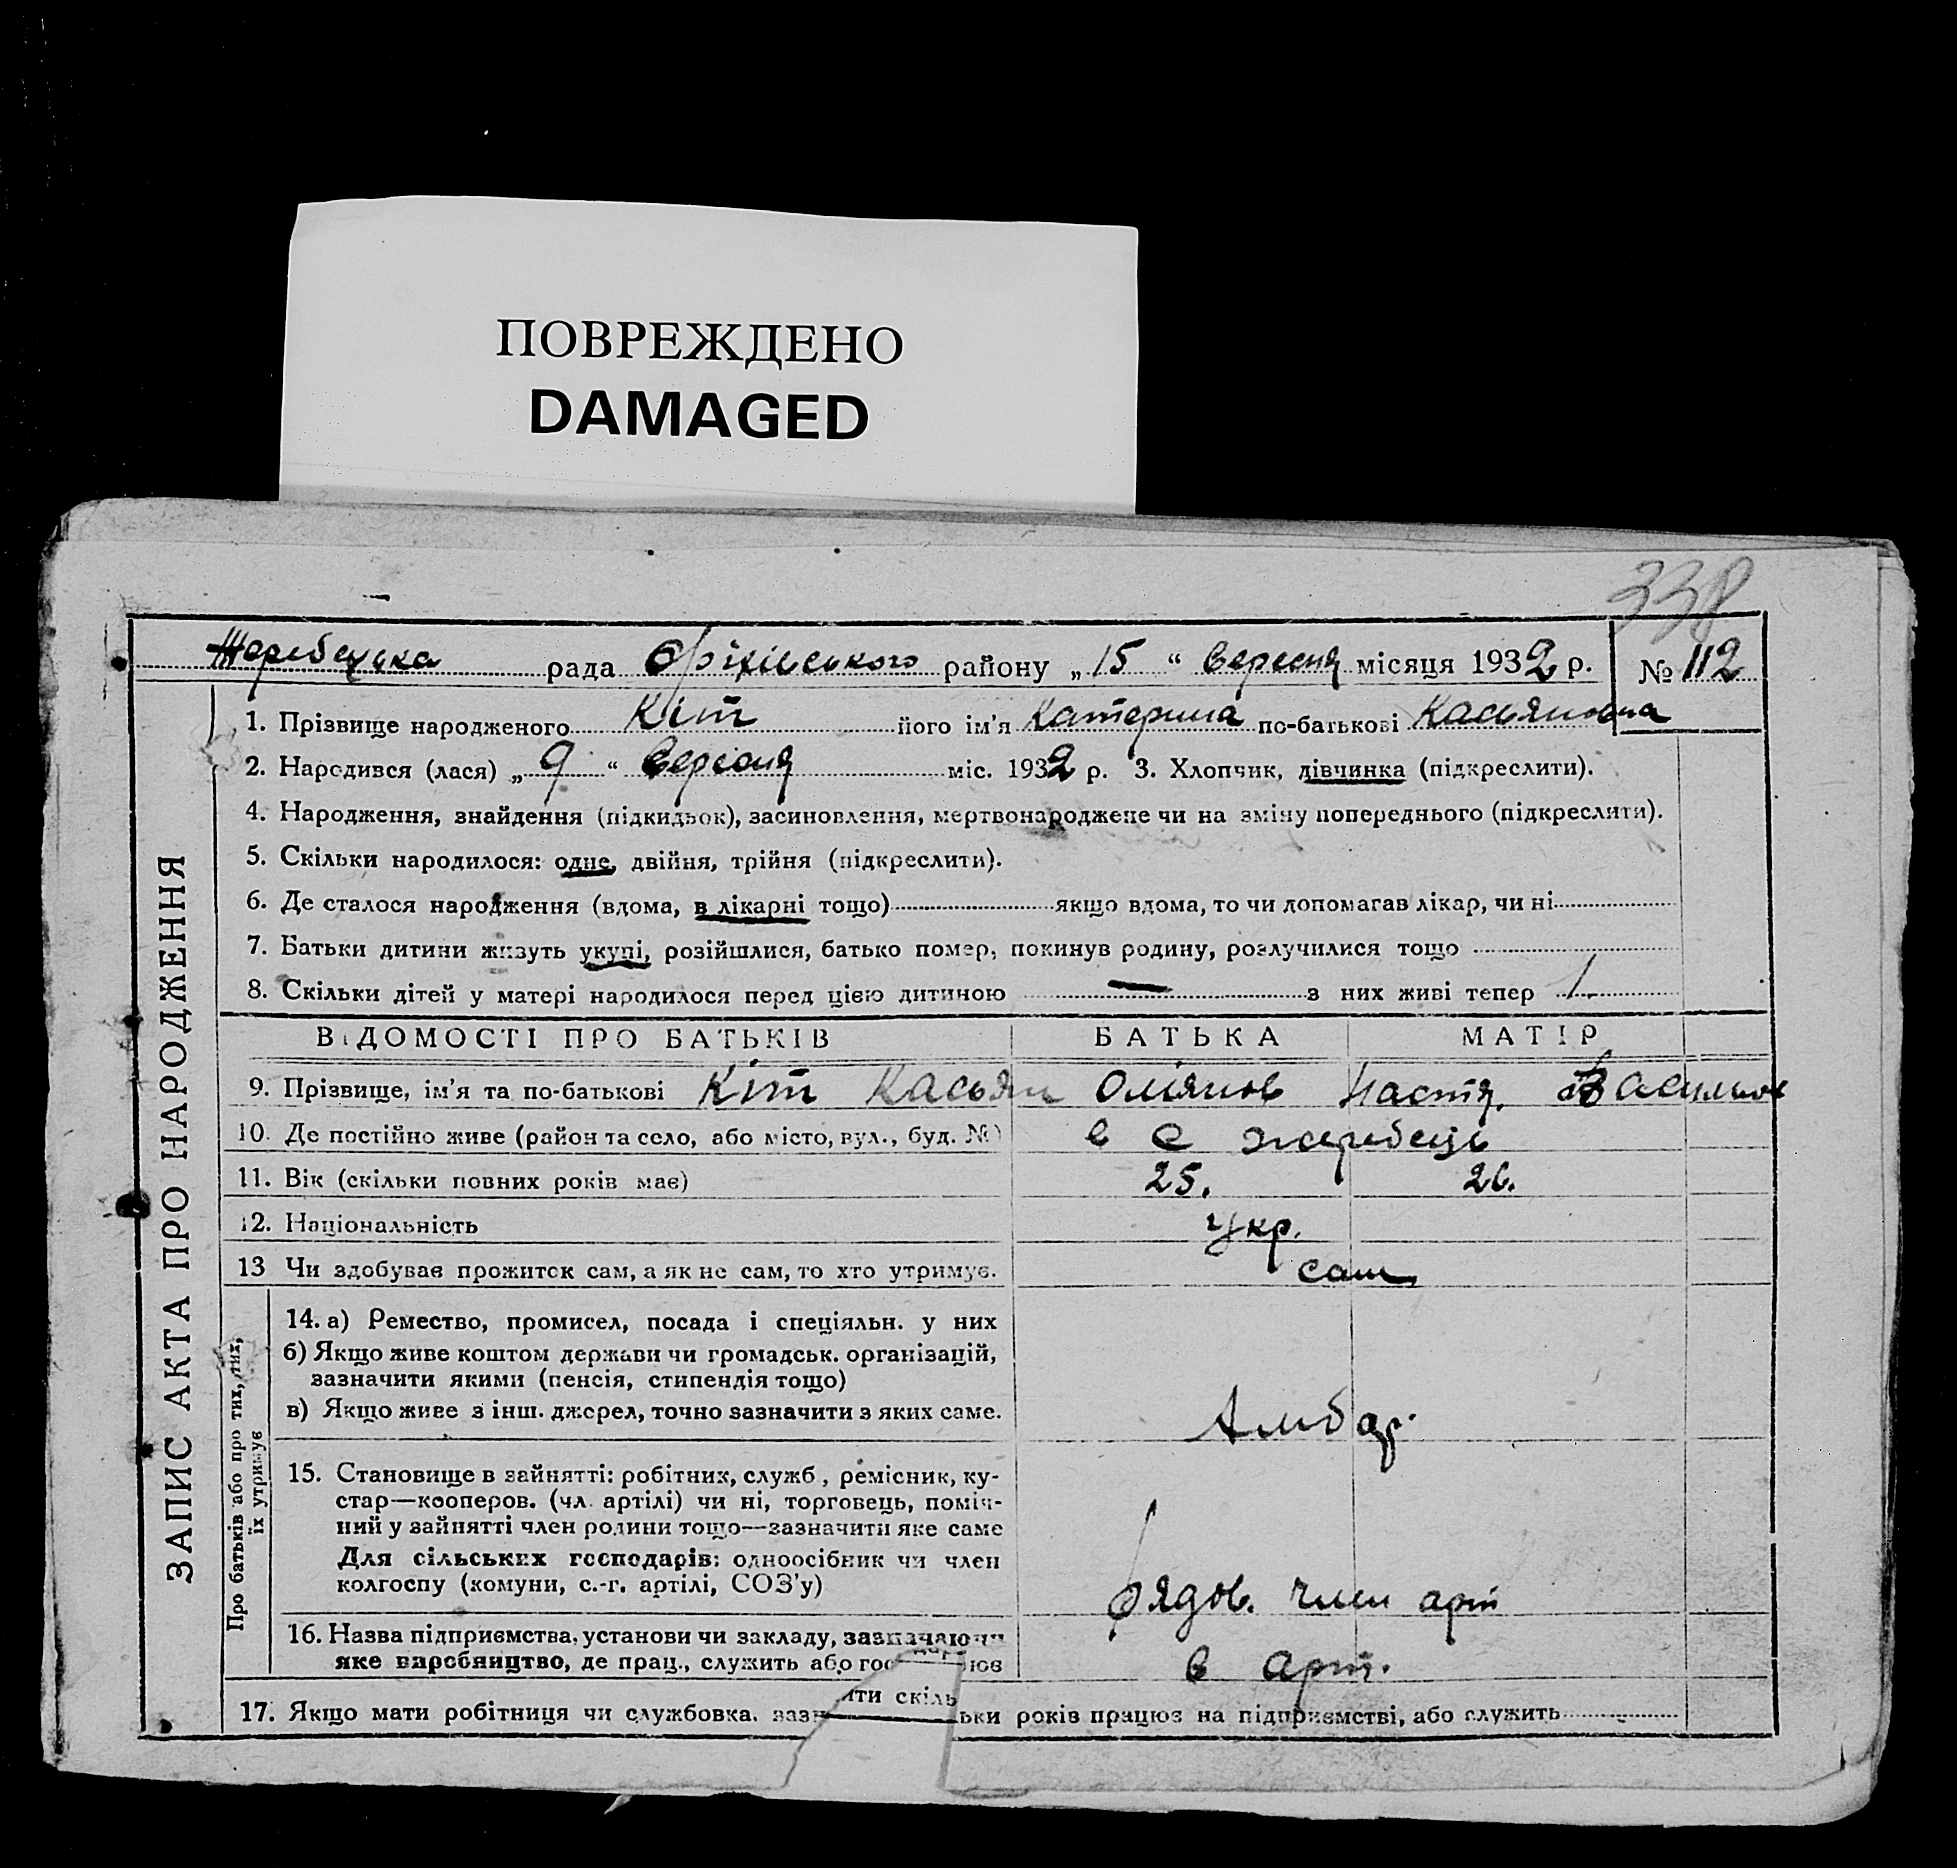 ПОВРЕЖДЕНО
DAMAGED
338
Жеребецька рада Оріхівського району „15“ вересня місяця 1932 р. № 112
1. Прізвище народженого Кіт його ім’я Катерина по-батькові Касьяновна
2. Народився (лася) „9“ вересня міс. 1932 р. 3. Хлопчик, дівчинка (підкреслити).
4. Народження, знайдення (підкидьок), засиновлення, мертвонароджене чи на зміну попереднього (підкреслити).
5. Скільки народилося: одне, двійня, трійня (підкреслити).
6. Де сталося народження (вдома, в лікарні тощо) якщо вдома, то чи допомагав лікар, чи ні
7. Батьки дитини живуть укупі, розійшлися, батько помер, покинув родину, розлучилися тощо
8. Скільки дітей у матері народилося перед цією дитиною — з них живі тепер 1
ВІДОМОСТІ ПРО БАТЬКІВ БАТЬКА МАТІР
9. Прізвище, ім’я та по-батькові Кіт Касьян Настя Васильов
10. Де постійно живе (район та село, або місто, вул., буд. №) в с жеребець
11. Вік (скільки повних років має) 25. 26.
12. Національність Укр.
13 Чи здобуває прожиток сам, а як не сам, то хто утримує. сам
14. а) Ремество, промисел, посада і спеціяльн. у них
б) Якщо живе коштом держави чи громадськ. організацій,
зазначити якими (пенсія, стипендія тощо)
в) Якщо живе з інш. джерел, точно зазначити з яких саме. Амбар.
15. Становище в зайнятті: робітник, служб, ремісник, ку-
стар—кооперов. (чл. артілі) чи ні, торговець, поміч-
ний у зайнятті член родини тощо—зазначити яке саме
Для сільських господарів: одноосібник чи член
колгоспу (комуни, с.-г. артілі, СОЗ’у) рядов. член арт
16. Назва підприємства, установи чи закладу, зазначаючи
яке виробництво, де прац., служить або гос ює в арт.
ити скіль
17. Якщо мати робітниця чи службовка, заз ьки років працює на підприємстві, або служить
ЗАПИС АКТА ПРО НАРОДЖЕННЯ
Про батьків або про тих, тих,
їх утримує